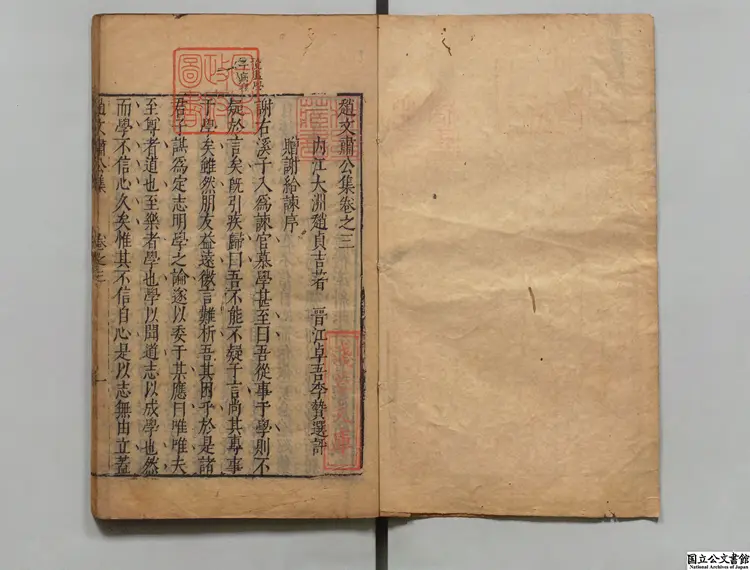 趙文肅公集卷之三
內江大洲趙貞吉著 晉江卓吾李贄選評
贈謝給諫序
謝右溪子入為諫官慕學甚至曰吾從事于學則不
疑於言矣既引疾歸曰吾不能不疑子言尚其專事
于學矣雖然朋友益遠徵言難析吾其困乎於是諸
君子謀為定志明學之論遂以委于某應曰唯唯夫
至尊者道也至樂者學也學以聞道志以成學也然
而學不信心久矣惟其不信自心是以志無由立蓋
趙文肅公集 卷之三 一
國立公文書館
National Archives of Japan